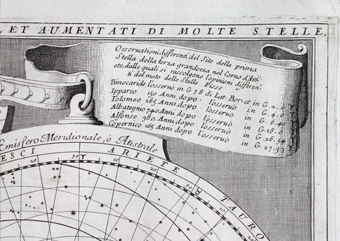 ET AUMENTATI DI MOLTE STELLE,
Osservationi differenti del Sito della prima
Stella della terza grandezza nel Corno d'Ari
ete, dalle quali si raccolgono l'opinioni differen
ti del moto delle Stelle fisse
Timocaride l'osservò in G 2
Ipparco anni dopo l'osservò in G 4.
Tolomeo 265 Anni dopo l'osservò in G 6.
Albategno 740 Anni dopo l'osservò in G. 18.
Alfonso 380 Anni dopo l'osservò in G.
Copernico Anni dopo l'osservò in G. 27.
Emisfero Meridionale, ò Australe
PESCI ARIETE TAURO